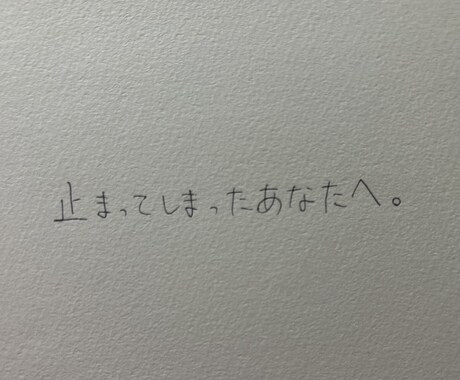 止まってしまったあなたへ。